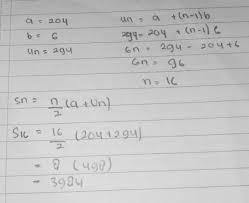 a = 204
b = 6
Un = 294
Un = a + (n-1)b
294 = 204 + (n-1) 6
6n = 294 - 204 + 6
6n = 96
n = 16
Sn = n/2 (a + Un)
S16 = 16/2 (204 + 294)
= 8 (498)
= 3984